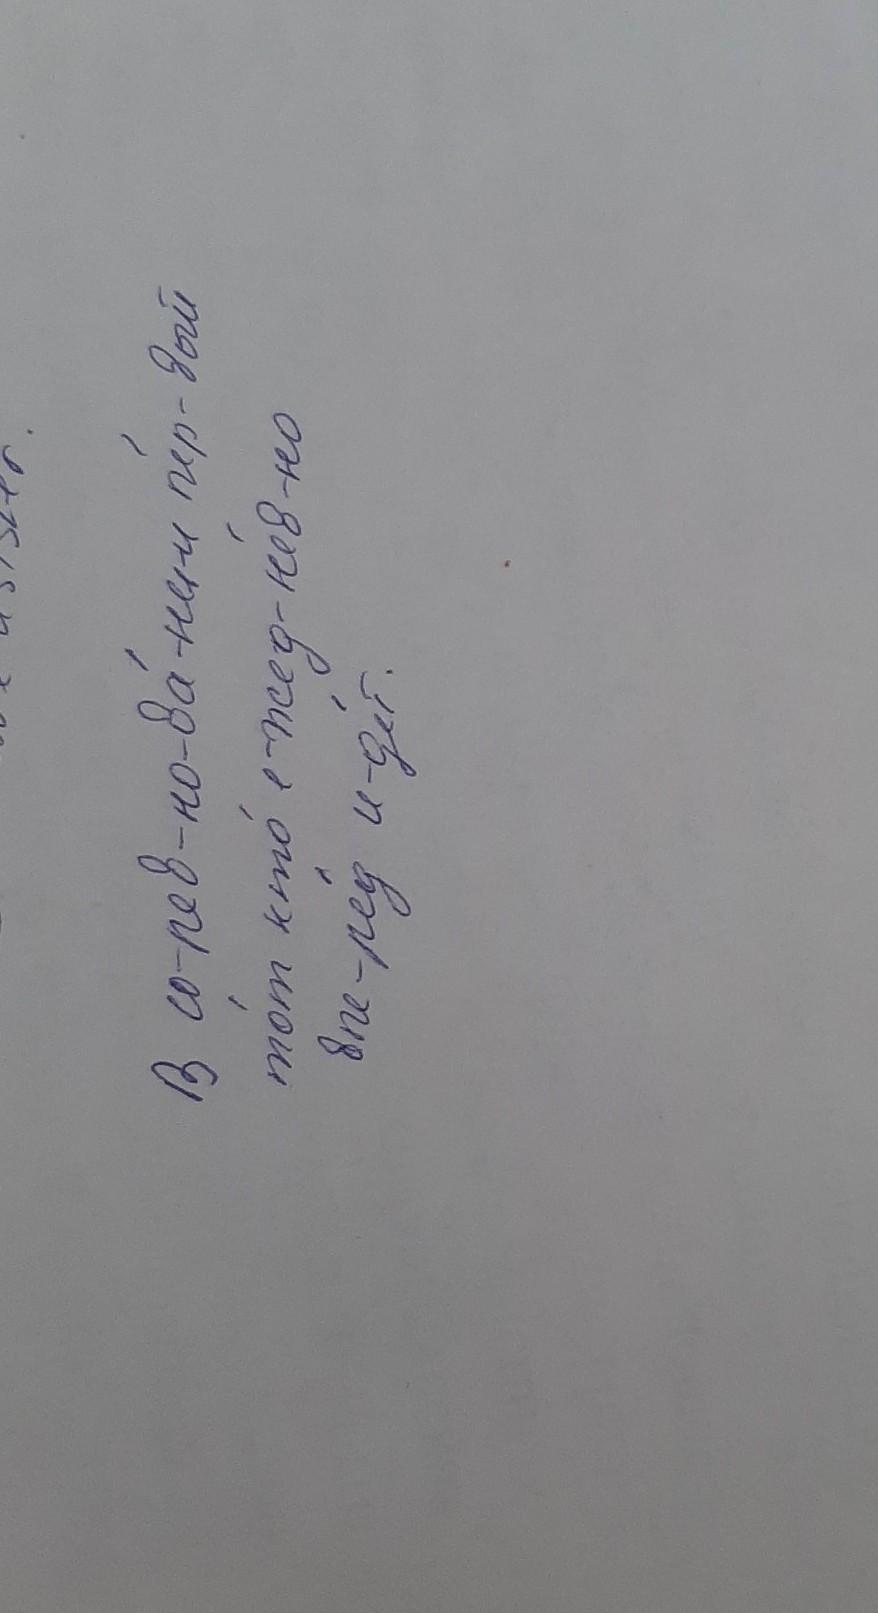 В со-рев-но-ва́-ни-и пе́р-вый
то́т кто́ е-жед-не́в-но
впе-рёд и-де́т.